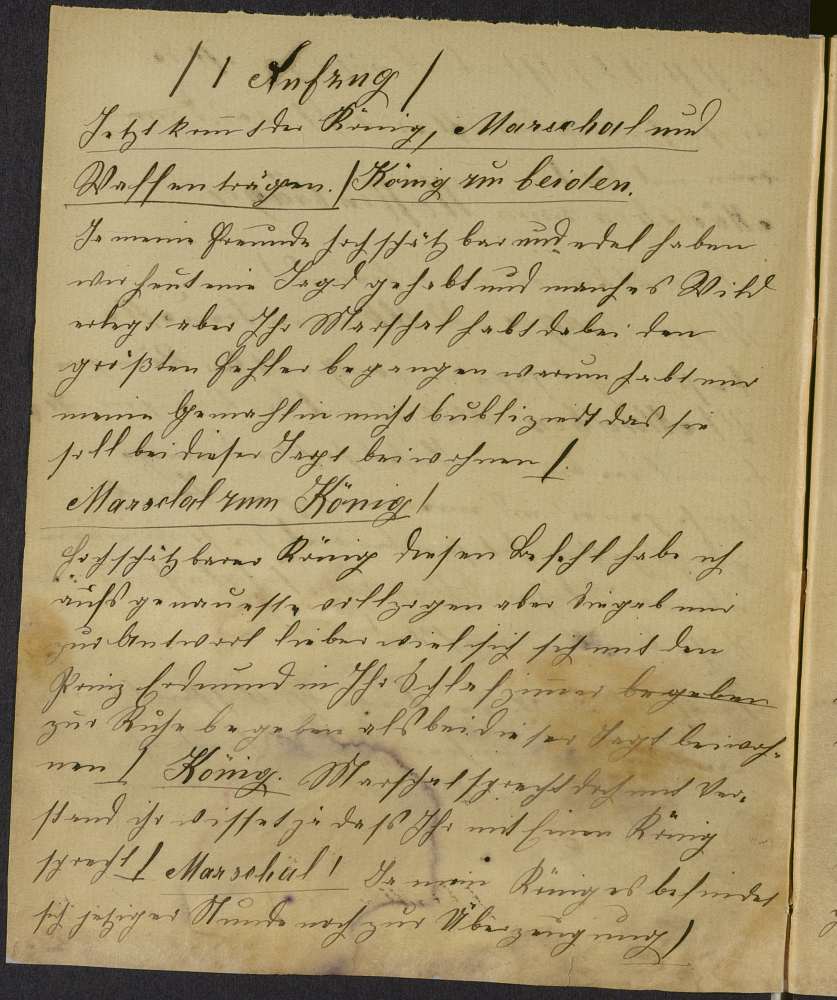 / 1 Aufzug /
Jetzt kom̄t der König, Marschal und
Waffenträgern. / König zu beiden.
Ja meine Freunde hochschätzbar und edel haben
wir heut eine Jagd gehabt und manches Wild
erlegt aber Ihr Marschal habt dabei den
größten Fehler begangen warum habt mir
meine Gemahlin nicht bubliziert das sie
soll bei dieser Jagt beiwohnen /.
Marschal zum König /
Hochschätzbarer König diesen Befehl habe ich
aufs genaueste vollzogen aber sie gab mir
zur Antwort lieber wiel sich sich mit den
Prinz Edmund in Ihr Schlafzim̄er begeben
zur Ruhe begeben als bei dieser Jagt beiwoh-
nen / König. Marschal sprecht doch mit Ver-
stand ihr wisset ja dass Ihr mit Einen König
sprecht / Marschal / Ja mein König es befindet
sich jetziger Stunde noch zur Überzeugung /